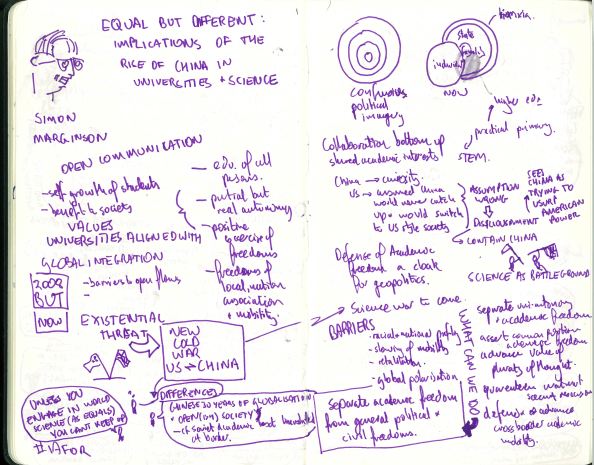 EQUAL BUT DIFFERENT:
IMPLICATIONS OF THE
RISE OF CHINA IN
UNIVERSITIES + SCIENCE
SIMON
MARGINSON
OPEN COMMUNICATION
- self growth of students
- benefit to society
VALUES
UNIVERSITIES ALIGNED WITH
- edu. of all persons.
- partial but
real autonomy
- positive
exercise of
freedoms
- freedoms of
local, nation
association
+ mobility.
GLOBAL INTEGRATION
2008
BUT
NOW
- barriers to open flows
-
EXISTENTIAL
THREAT
NEW
COLD
WAR
US ↔ CHINA
UNLESS YOU
ENGAGE IN WORLD
SCIENCE (AS EQUALS)
YOU CAN'T KEEP UP
#IAFOR
DIFFERENCES
CHINESE 30 YEARS OF GLOBALISATION
+ OPEN(ISH) SOCIETY
cf soviet
at border.
Confucius
political
imagery
state
family
individual
NOW
tianxia.
Collaboration bottom up
shared academic interests
STEM.
higher edu
practical primary.
China → curiosity.
US → assumed China
would never catch
up + would switch
to US style society
ASSUMPTION
WRONG
DISILLUSIONMENT
SEES
CHINA AS
TRYING TO
USURP
AMERICAN
POWER
→ CONTAIN CHINA
SCIENCE AS BATTLEGROUND
Defense of Academic
freedom a cloak
for geopolitics.
→ Science war to come.
BARRIERS
- racial + national profiling
- slowing of mobility
- retaliation.
- global polarisation
separate academic freedom
from general political +
civil freedoms.
WHAT CAN WE DO
separate uni-autonomy
+ academic freedom
assert common position
academic freedom
advance value of
plurality of thought.
quarantine
defense + advance
cross border academic
mobility.